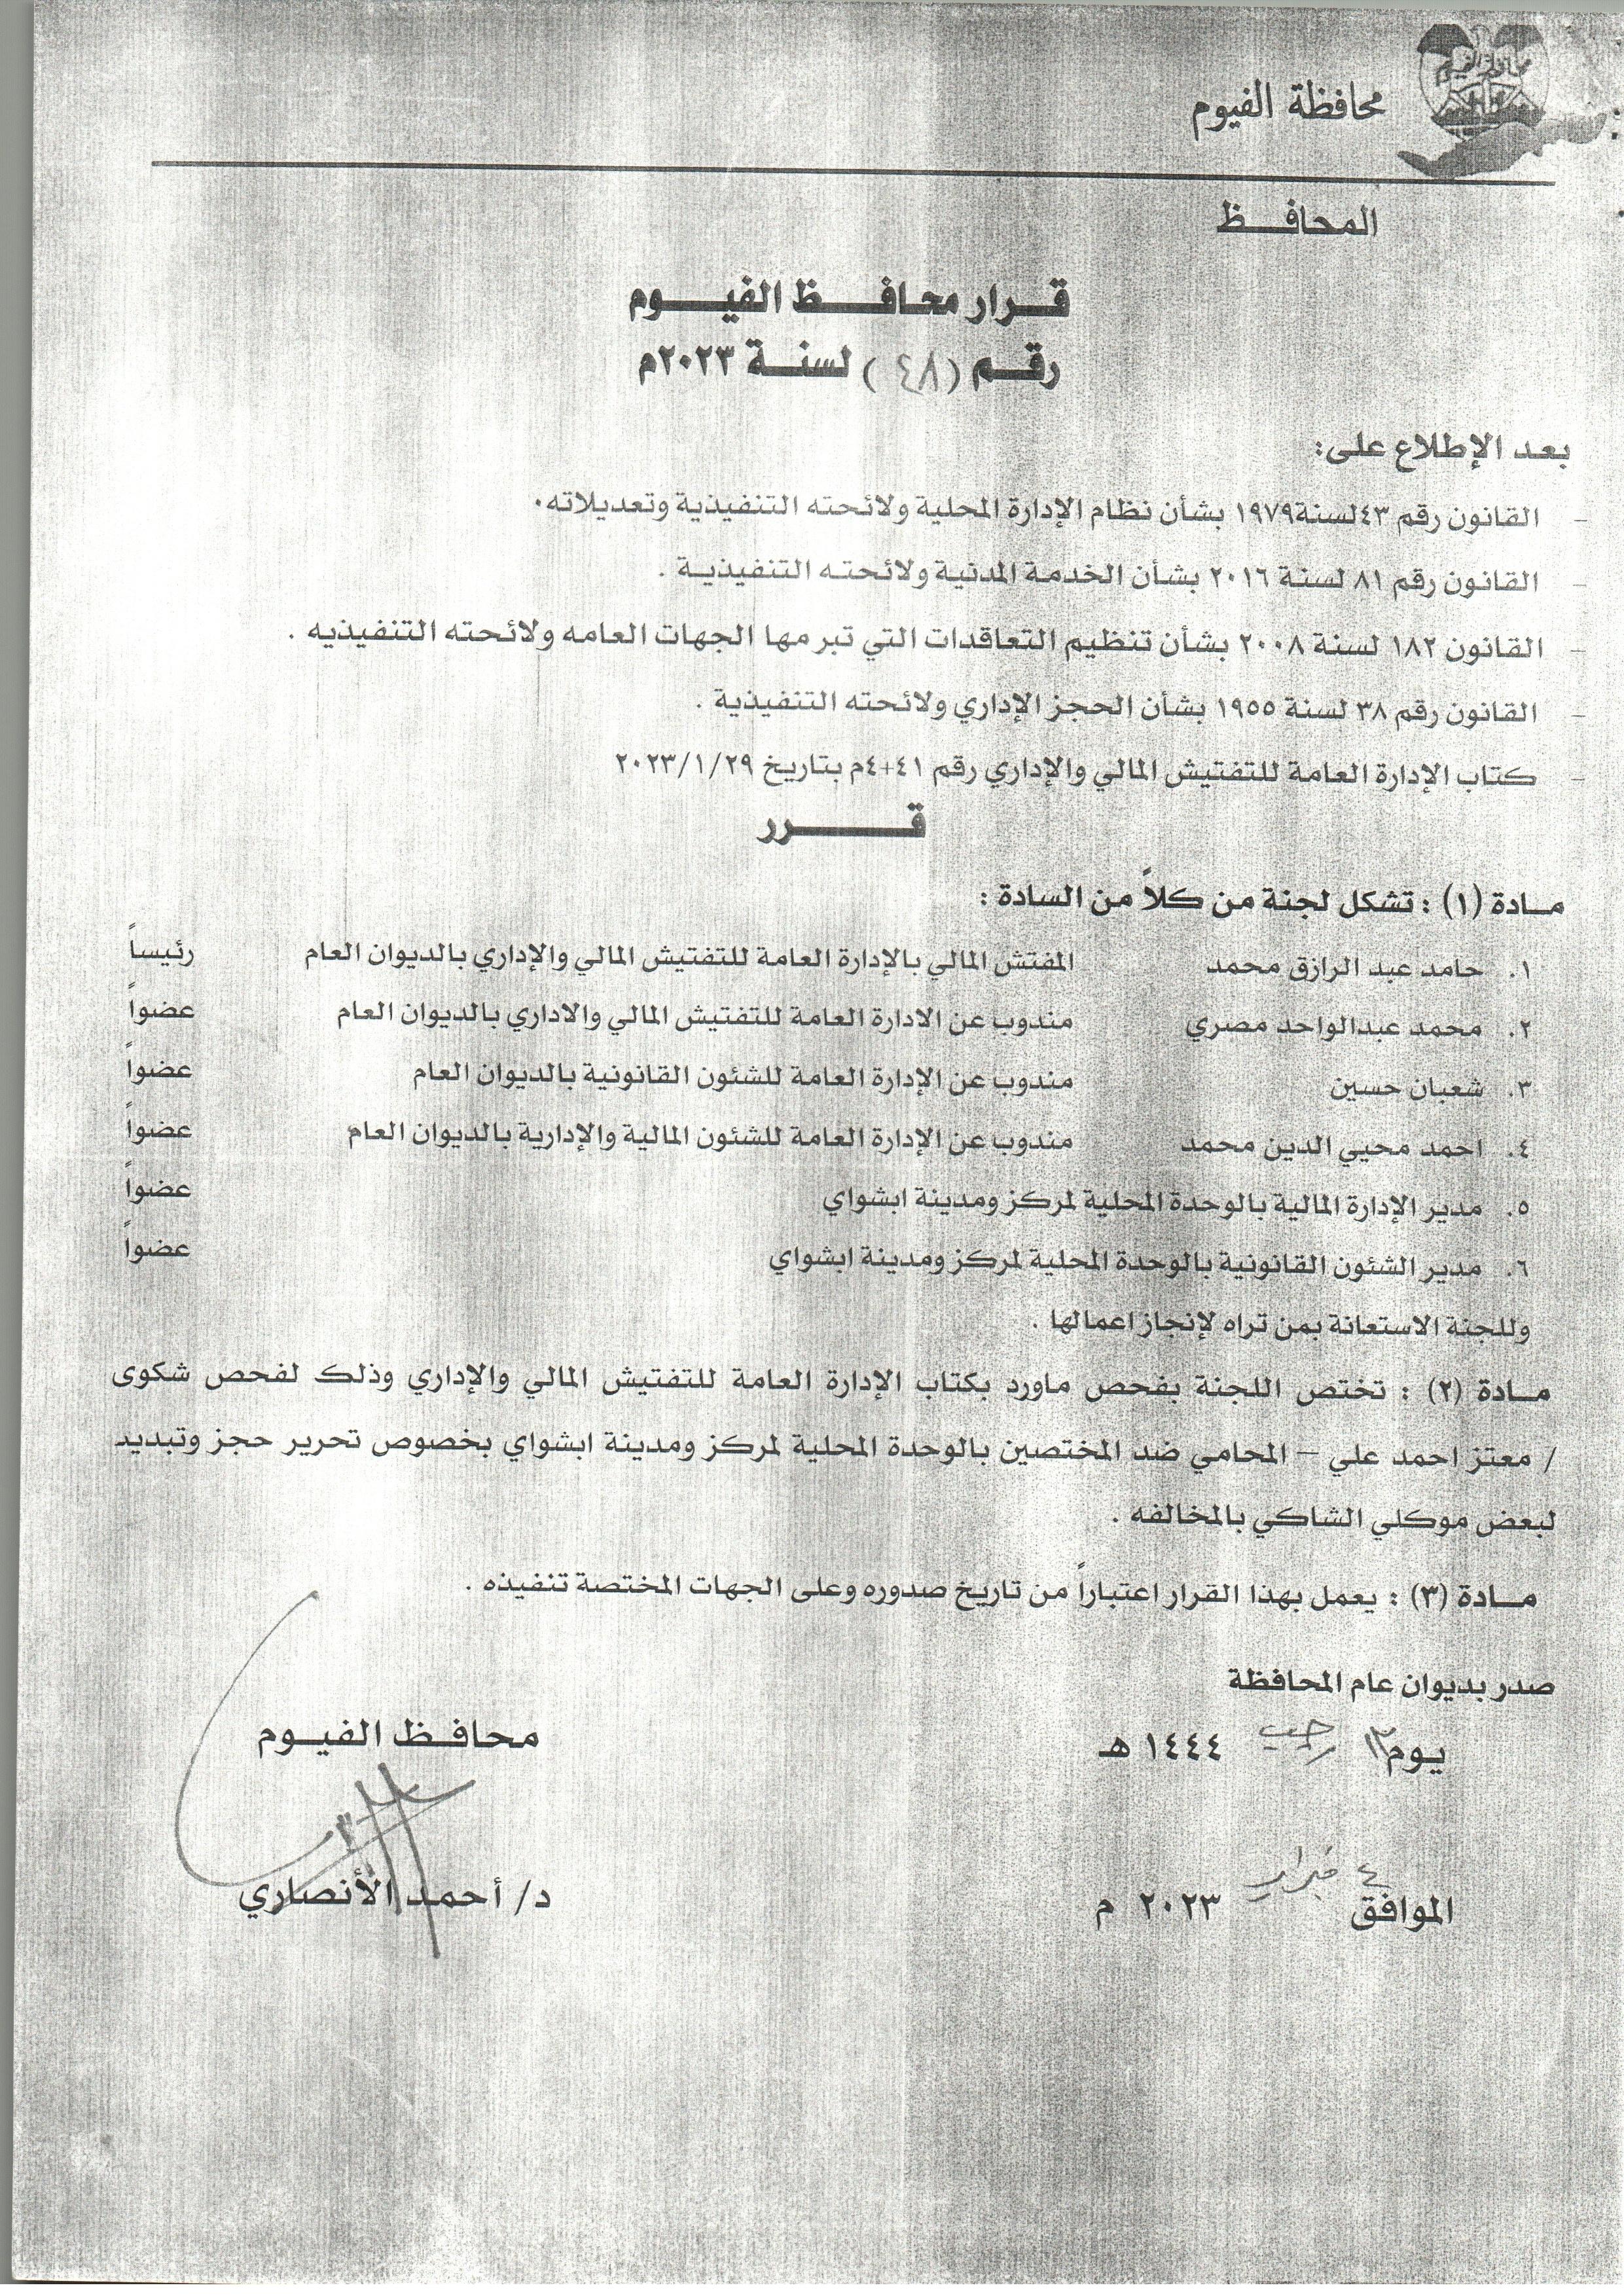 محافظة الفيوم
محافظة الفيوم
المحافــظ
قــرار محافــظ الفيــوم
رقــم (٤٨) لسنــة ٢٠٢٣م
بعد الإطلاع على:
- القانون رقم ٤٣لسنة١٩٧٩ بشأن نظام الإدارة المحلية ولائحته التنفيذية وتعديلاته.
- القانون رقم ٨١ لسنة ٢٠١٦ بشأن الخدمة المدنية ولائحته التنفيذية .
- القانون ١٨٢ لسنة ٢٠٠٨ بشأن تنظيم التعاقدات التي تبرمها الجهات العامه ولائحته التنفيذيه .
- القانون رقم ٣٨ لسنة ١٩٥٥ بشأن الحجز الإداري ولائحته التنفيذية .
- كتاب الإدارة العامة للتفتيش المالي والإداري رقم ٤١+٤م بتاريخ ٢٠٢٣/١/٢٩
قــــرر
مــادة (١) : تشكل لجنة من كلاً من السادة :
١. حامد عبد الرازق محمد المفتش المالي بالإدارة العامة للتفتيش المالي والإداري بالديوان العام رئيساً
٢. محمد عبدالواحد مصري مندوب عن الادارة العامة للتفتيش المالي والاداري بالديوان العام عضواً
٣. شعبان حسين مندوب عن الإدارة العامة للشئون القانونية بالديوان العام عضواً
٤. احمد محيي الدين محمد مندوب عن الإدارة العامة للشئون المالية والإدارية بالديوان العام عضواً
٥. مدير الإدارة المالية بالوحدة المحلية لمركز ومدينة ابشواي عضواً
٦. مدير الشئون القانونية بالوحدة المحلية لمركز ومدينة ابشواي عضواً
وللجنة الاستعانة بمن تراه لإنجاز اعمالها .
مــادة (٢) : تختص اللجنة بفحص ماورد بكتاب الإدارة العامة للتفتيش المالي والإداري وذلك لفحص شكوى
/ معتز احمد علي – المحامي ضد المختصين بالوحدة المحلية لمركز ومدينة ابشواي بخصوص تحرير حجز وتبديد
لبعض موكلي الشاكي بالمخالفه .
مــادة (٣) : يعمل بهذا القرار اعتباراً من تاريخ صدوره وعلى الجهات المختصة تنفيذه .
صدر بديوان عام المحافظة
يوم ١٣ رجب ١٤٤٤ هـ
محافــظ الفيــوم
الموافق ٤ فبراير ٢٠٢٣ م
د/ أحمد الأنصاري